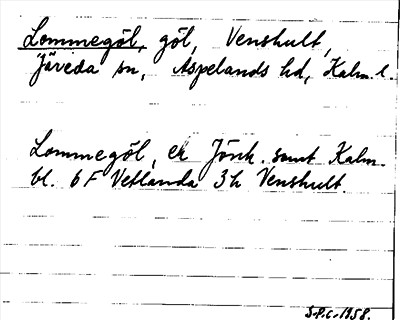 Lommegöl, göl, Venshult,
Järeda sn, Aspelands hd, Kalm. l.
Lommegöl, ek Jönk. samt Kalm.
bl. 6 F Vetlanda 3 h Venshult.
S.P.C. 1958.